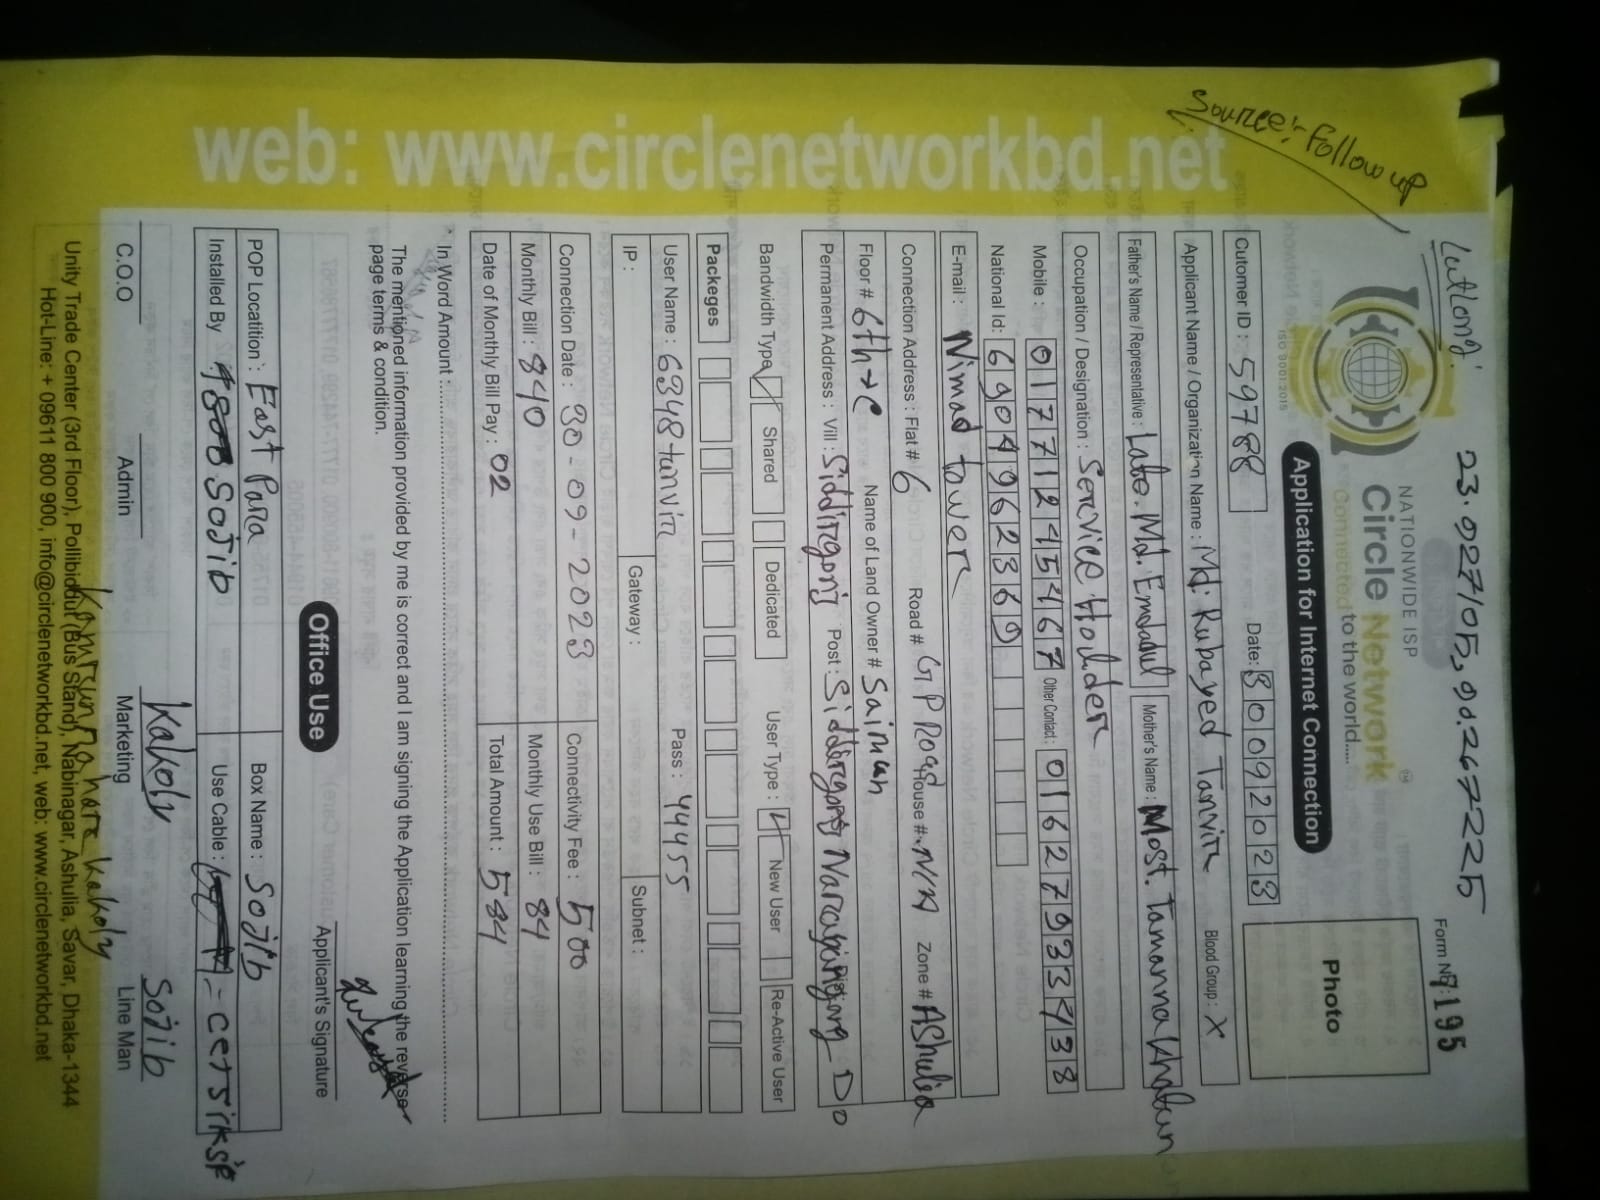 Source:- Follow up
Lutlong: 23.027105, 90.267225
NATIONWIDE ISP
Circle Network
Connected to the world.....
ISO 9001:2015
Form No: 9195
Application for Internet Connection
Photo
Cutomer ID : 59788 Date: 30092023
Applicant Name / Organization Name : Md: Rubayed Tanvir Blood Group : X
Father's Name / Representative : Late. Md. Emdadul Mother's Name : Most. Tamanna Khatun
Occupation / Designation : Service Holder
Mobile : 01771245467 Other Contact : 01627933438
National Id: 6904962369
E-mail : Nimad tower
Connection Address : Flat # 6 Road # GP Road House # N/A Zone # AShulia
Floor # 6th→C Name of Land Owner # Saimun
Permanent Address : Vill : Siddirgonj Post : Siddirgonj Narayangong D0
Bandwidth Type Shared Dedicated User Type : New User Re-Active User
Packeges
User Name : 6348-tanvir Pass : 44455
IP : Gateway : Subnet :
Connection Date : 30-09-2023 Connectivity Fee : 500
Monthly Bill : 840 Monthly Use Bill : 84
Date of Monthly Bill Pay : 02 Total Amount : 584
* In Word Amount :
The mentioned information provided by me is correct and I am signing the Application learning the reverse
page terms & condition.
Applicant's Signature
Office Use
POP Locatition : East Para Box Name : Sojib
Installed By Sojib Use Cable :
Kakoly Sojib
C.O.O Admin Marketing Line Man
Kamrunnahare Kakoly
Unity Trade Center (3rd Floor), Pollibiddut (Bus Stand), Nabinagar, Ashulia, Savar, Dhaka-1344
Hot-Line: + 09611 800 900, info@circlenetworkbd.net, web: www.circlenetworkbd.net
web: www.circlenetworkbd.net